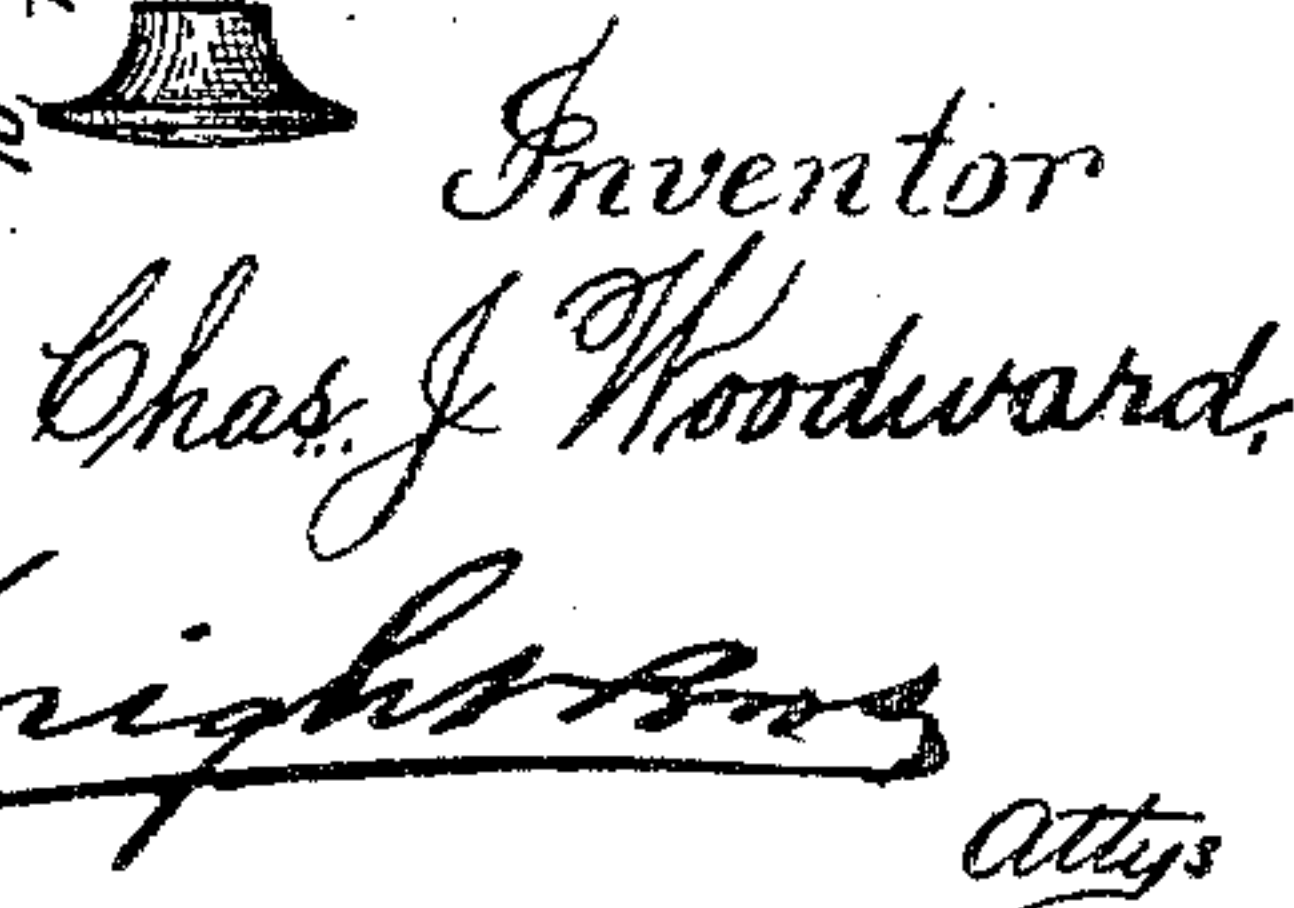 Inventor
Chas. J Woodward.
Knight Bros
Attys